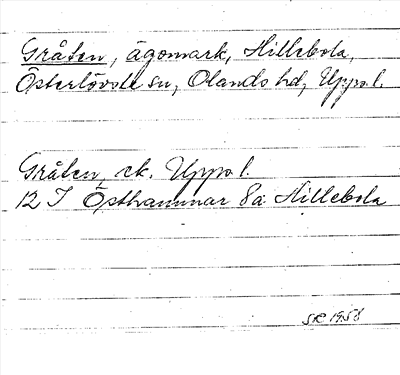 Gråten, ägomark, Hillebola,
Österlövsta sn, Olands hd, Upps l.
Gråten, ek. Upps l.
12 I Östhammar 8a Hillebola
SR 1958